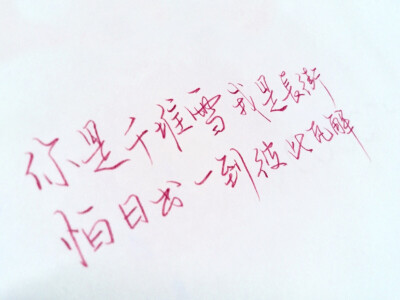 你是千堆雪我是長街
怕日出一到彼此瓦解